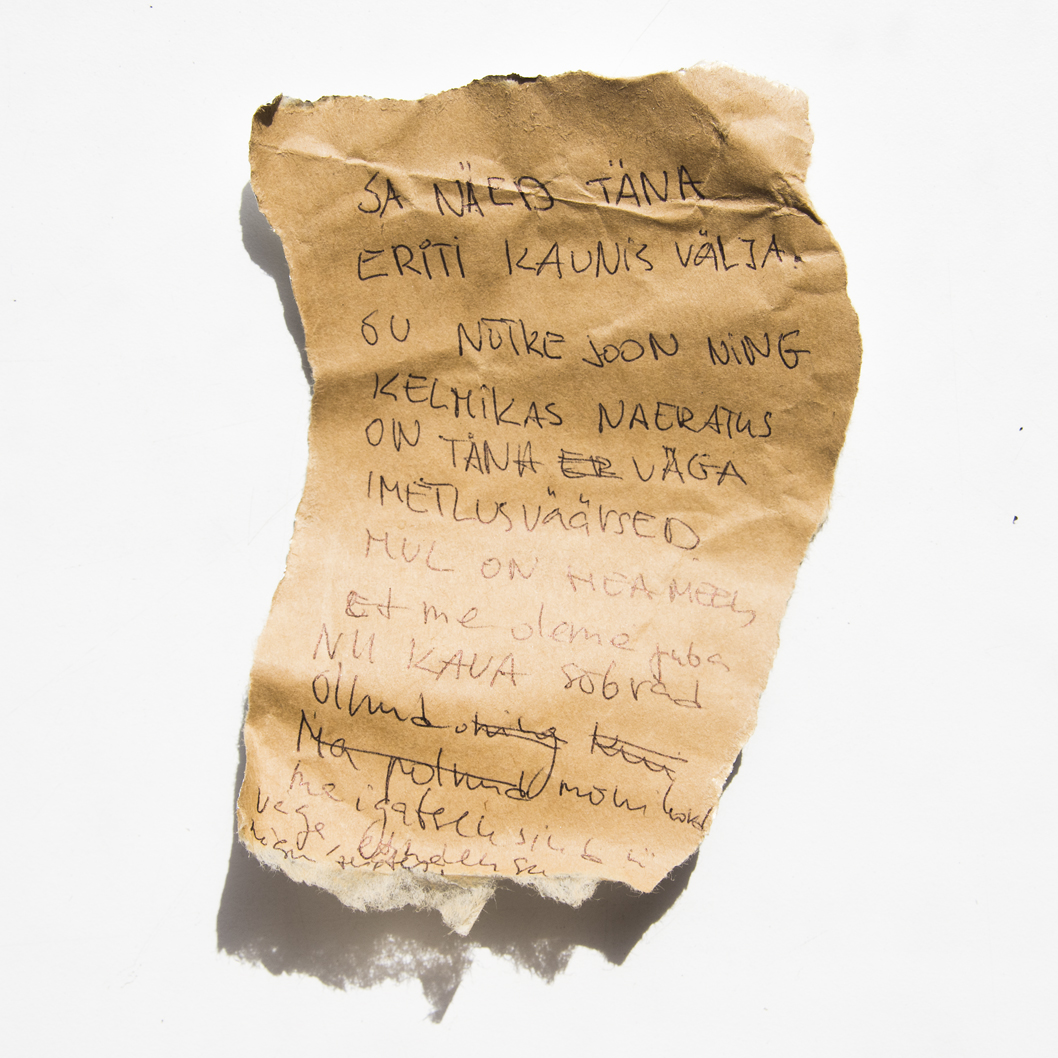 SA NÄED TÄNA
ERITI KAUNIS VÄLJA.
SU NÕTKE JOON NING
KELMIKAS NAERATUS
ON TÄNA ER VÄGA
IMETLUSVÄÄRSED
MUL ON HEAMEEL,
Et me oleme juba
NII KAUA sõbrad
Olnud ning kuid
Ma polnud mõni kord
me igatsen sind
väga